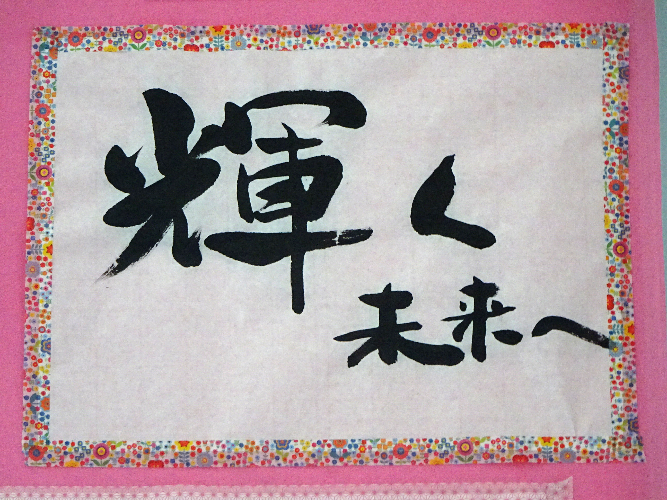 輝く
未来へ